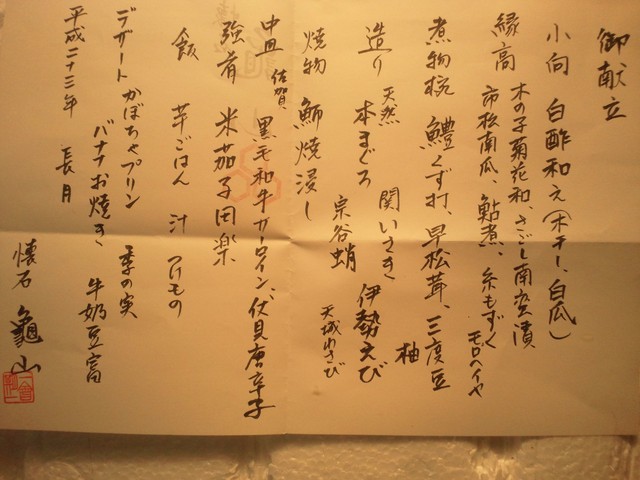 御献立
小向 白酢和え(木干し、白瓜)
縁高 木の子菊花和、さごし南蛮漬
市松南瓜、鮎煮、糸もずく
モロヘイヤ
煮物椀 鱧くず打、早松茸、三度豆
柚
造り 天然 本まぐろ 関いさき 伊勢えび
宗谷蛸 天城わさび
焼物 鰤焼浸し
中皿 佐賀、黒毛和牛サーロイン、伏見唐辛子
強肴 米茄子田楽
飯 芋ごはん 汁 つけもの
デザート かぼちゃプリン 季の実
バナナお焼き 牛奶豆富
平成二十三年 長月
懐石 龜山